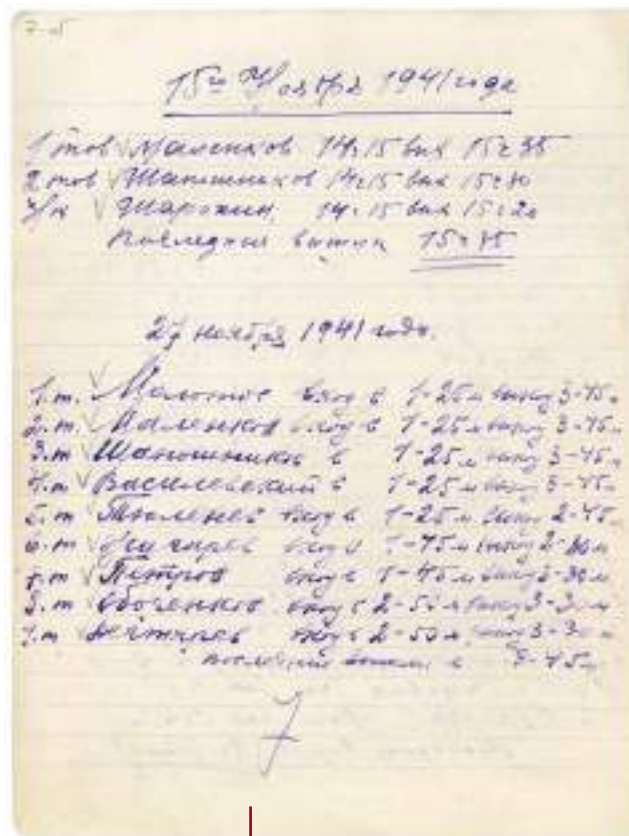 15го Ноября 1941 года
1 тов Маленков 14:15 вых 15:35
2 тов Шапошников 14:15 вых
Шарохин 14:15 вых 15:20
последний вышел
27 ноября 1941 года.
1. т. Молотов вход в 1-25 м выход 3-45 м
2. т. Маленков вход в 1-25 м выход 3-45 м
3. т Шапошников в 1-25 м выход 3-45 м
4. т Василевский в 1-25 м выход 3-45 м
5. т Тюленев вход в 1-25 м выход 2-45 м
6. т Жигарев вход в выход
7. т Петров вход в 1-45 м выход 2-30 м
вход в 2-50 м выход 3-30 м
вход в 2-50 м выход 3-30 м
последний вышел в 3-45 м
7